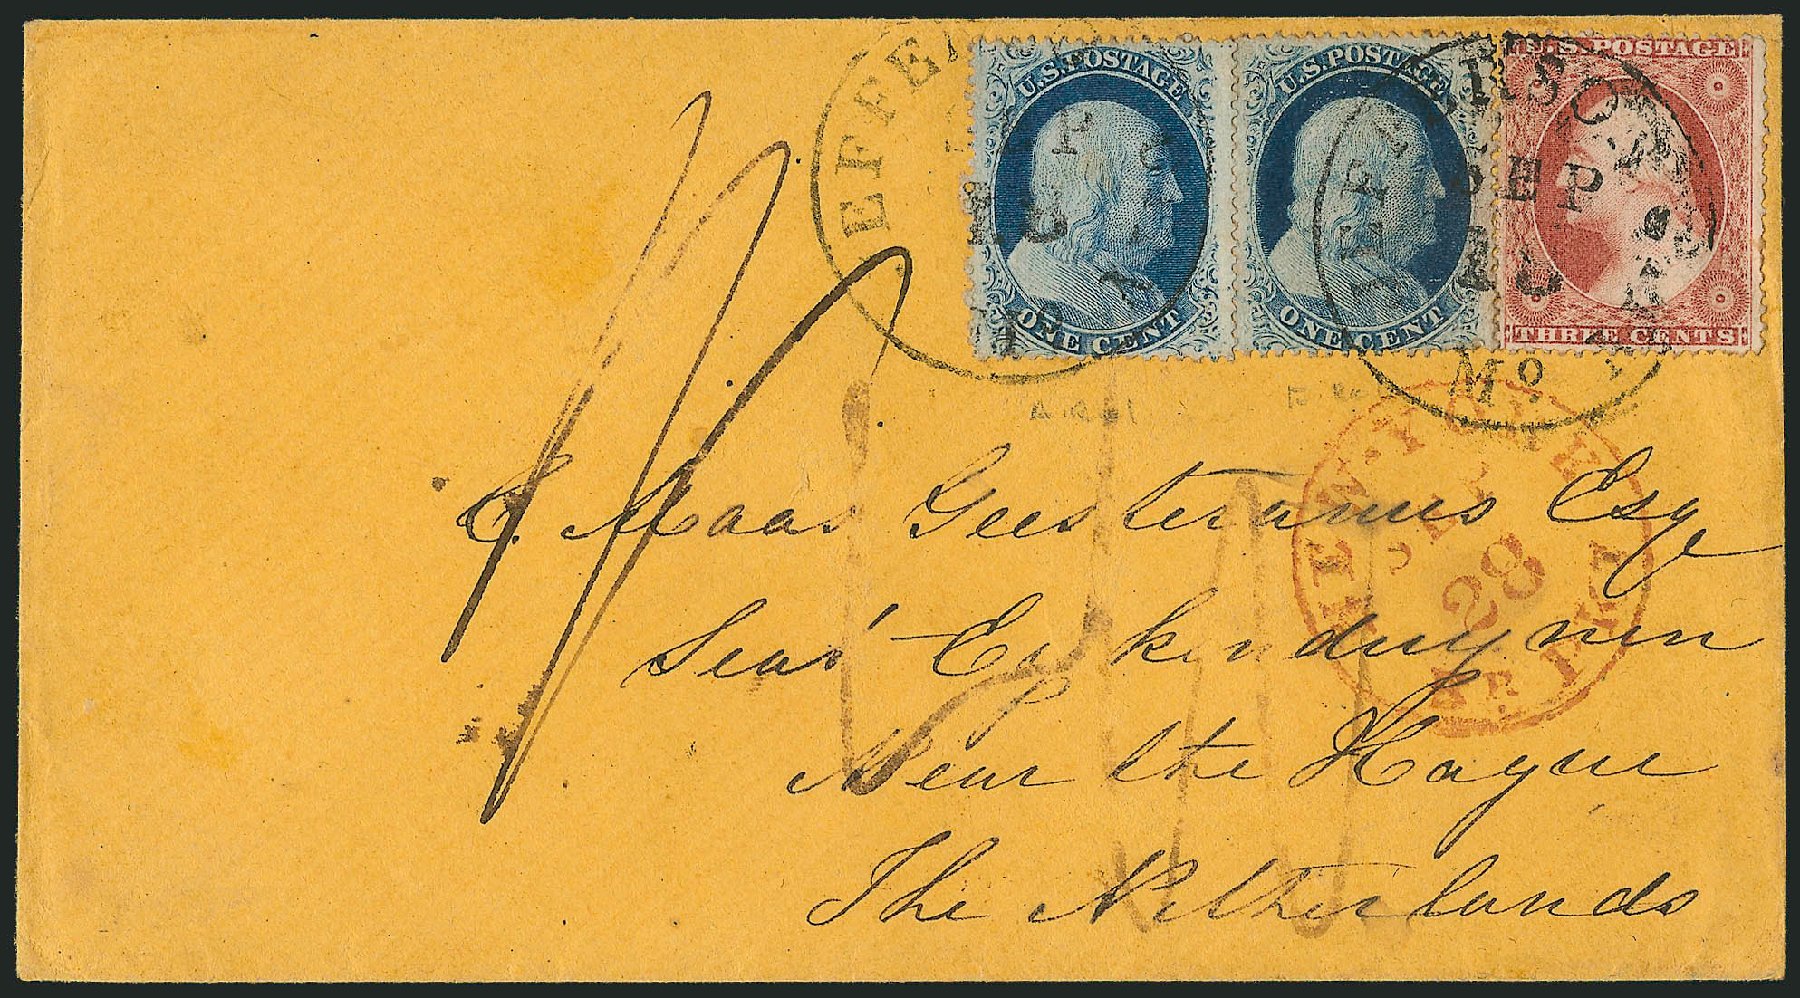 U.S. POSTAGE
ONE CENT
U.S. POSTAGE
ONE CENT
U.S. POSTAGE
THREE CENTS
SEP
18
Mo.
NEW-YORK
28
SEP
E. Maas Geesteranus Esqe
Seas' Eykenduynen
Near the Hague
The Netherlands